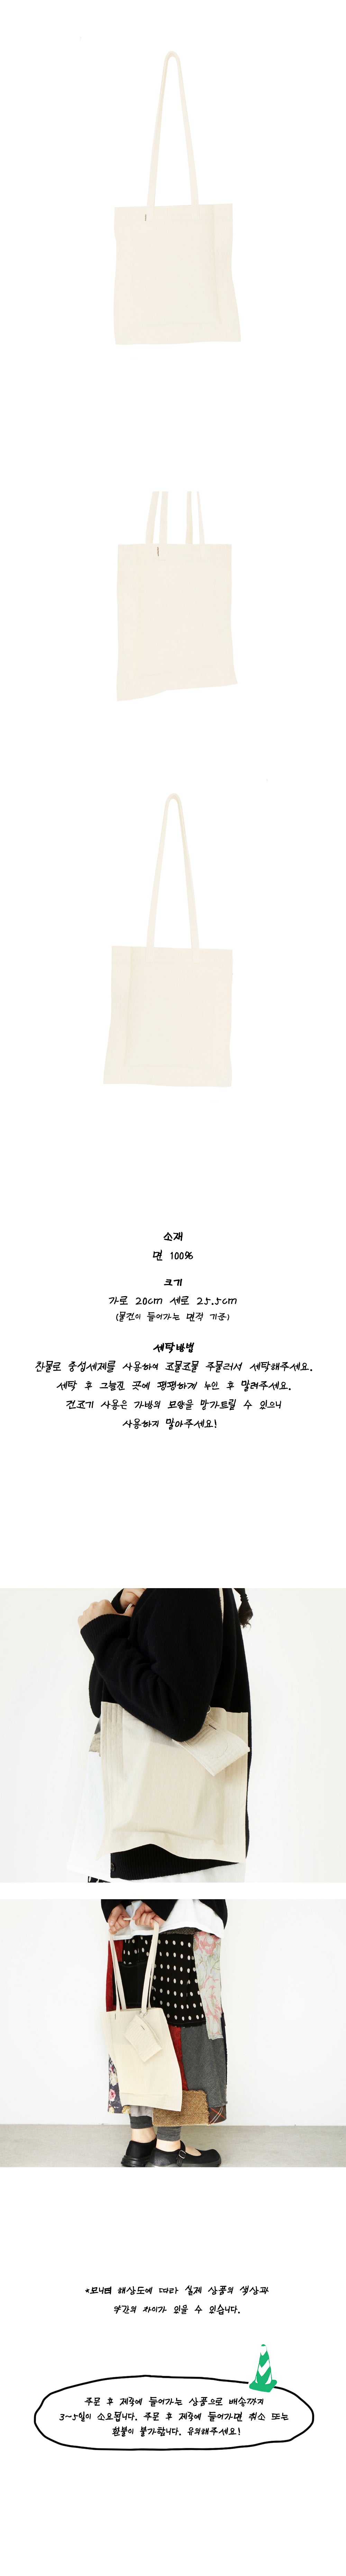 소재
면 100%
크기
가로 20cm 세로 25.5cm
(물건이 들어가는 면적 기준)
세탁방법
찬물로 중성세제를 사용하여 조물조물 주물러서 세탁해주세요.
세탁 후 그늘진 곳에 평평하게 누인 후 말려주세요.
건조기 사용은 가방의 모양을 망가트릴 수 있으니
사용하지 말아주세요!
*모니터 해상도에 따라 실제 상품의 색상과
약간의 차이가 있을 수 있습니다.
주문 후 제작에 들어가는 상품으로 배송까지
3~5일이 소요됩니다. 주문 후 제작에 들어가면 취소 또는
환불이 불가합니다. 유의해주세요!